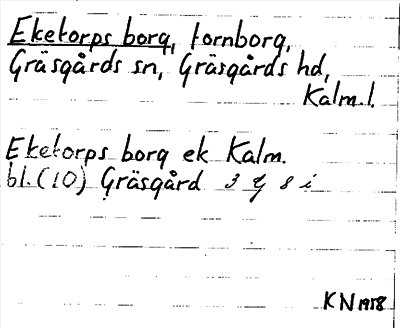 Eketorps borg, fornborg,
Gräsgårds sn, Gräsgårds hd,
Kalm. l.
Eketorps borg ek Kalm.
bl. (10) Gräsgård 3 g 8 i
KN 1958